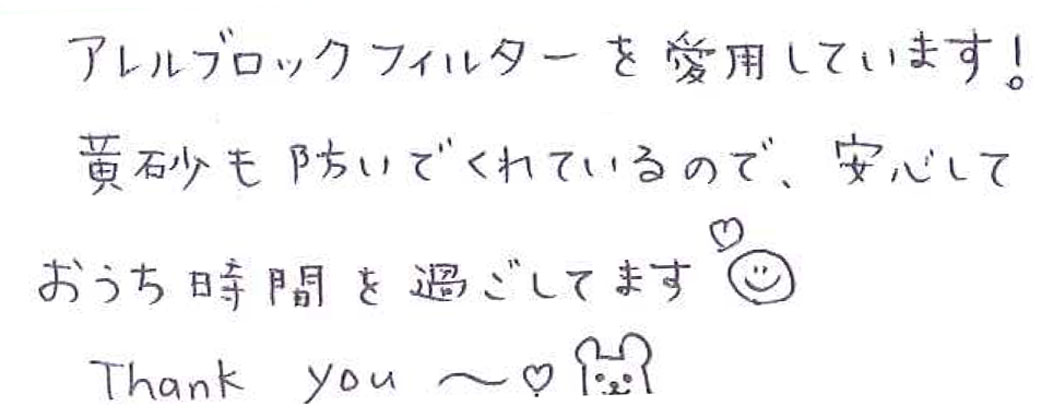 アレルブロックフィルターを愛用しています!
黄砂も防いでくれているので、安心して
おうち時間を過ごしてます
Thank you ～♡